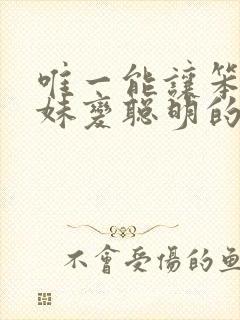 唯一能讓笨
妹變聰明的
不會受傷的魚